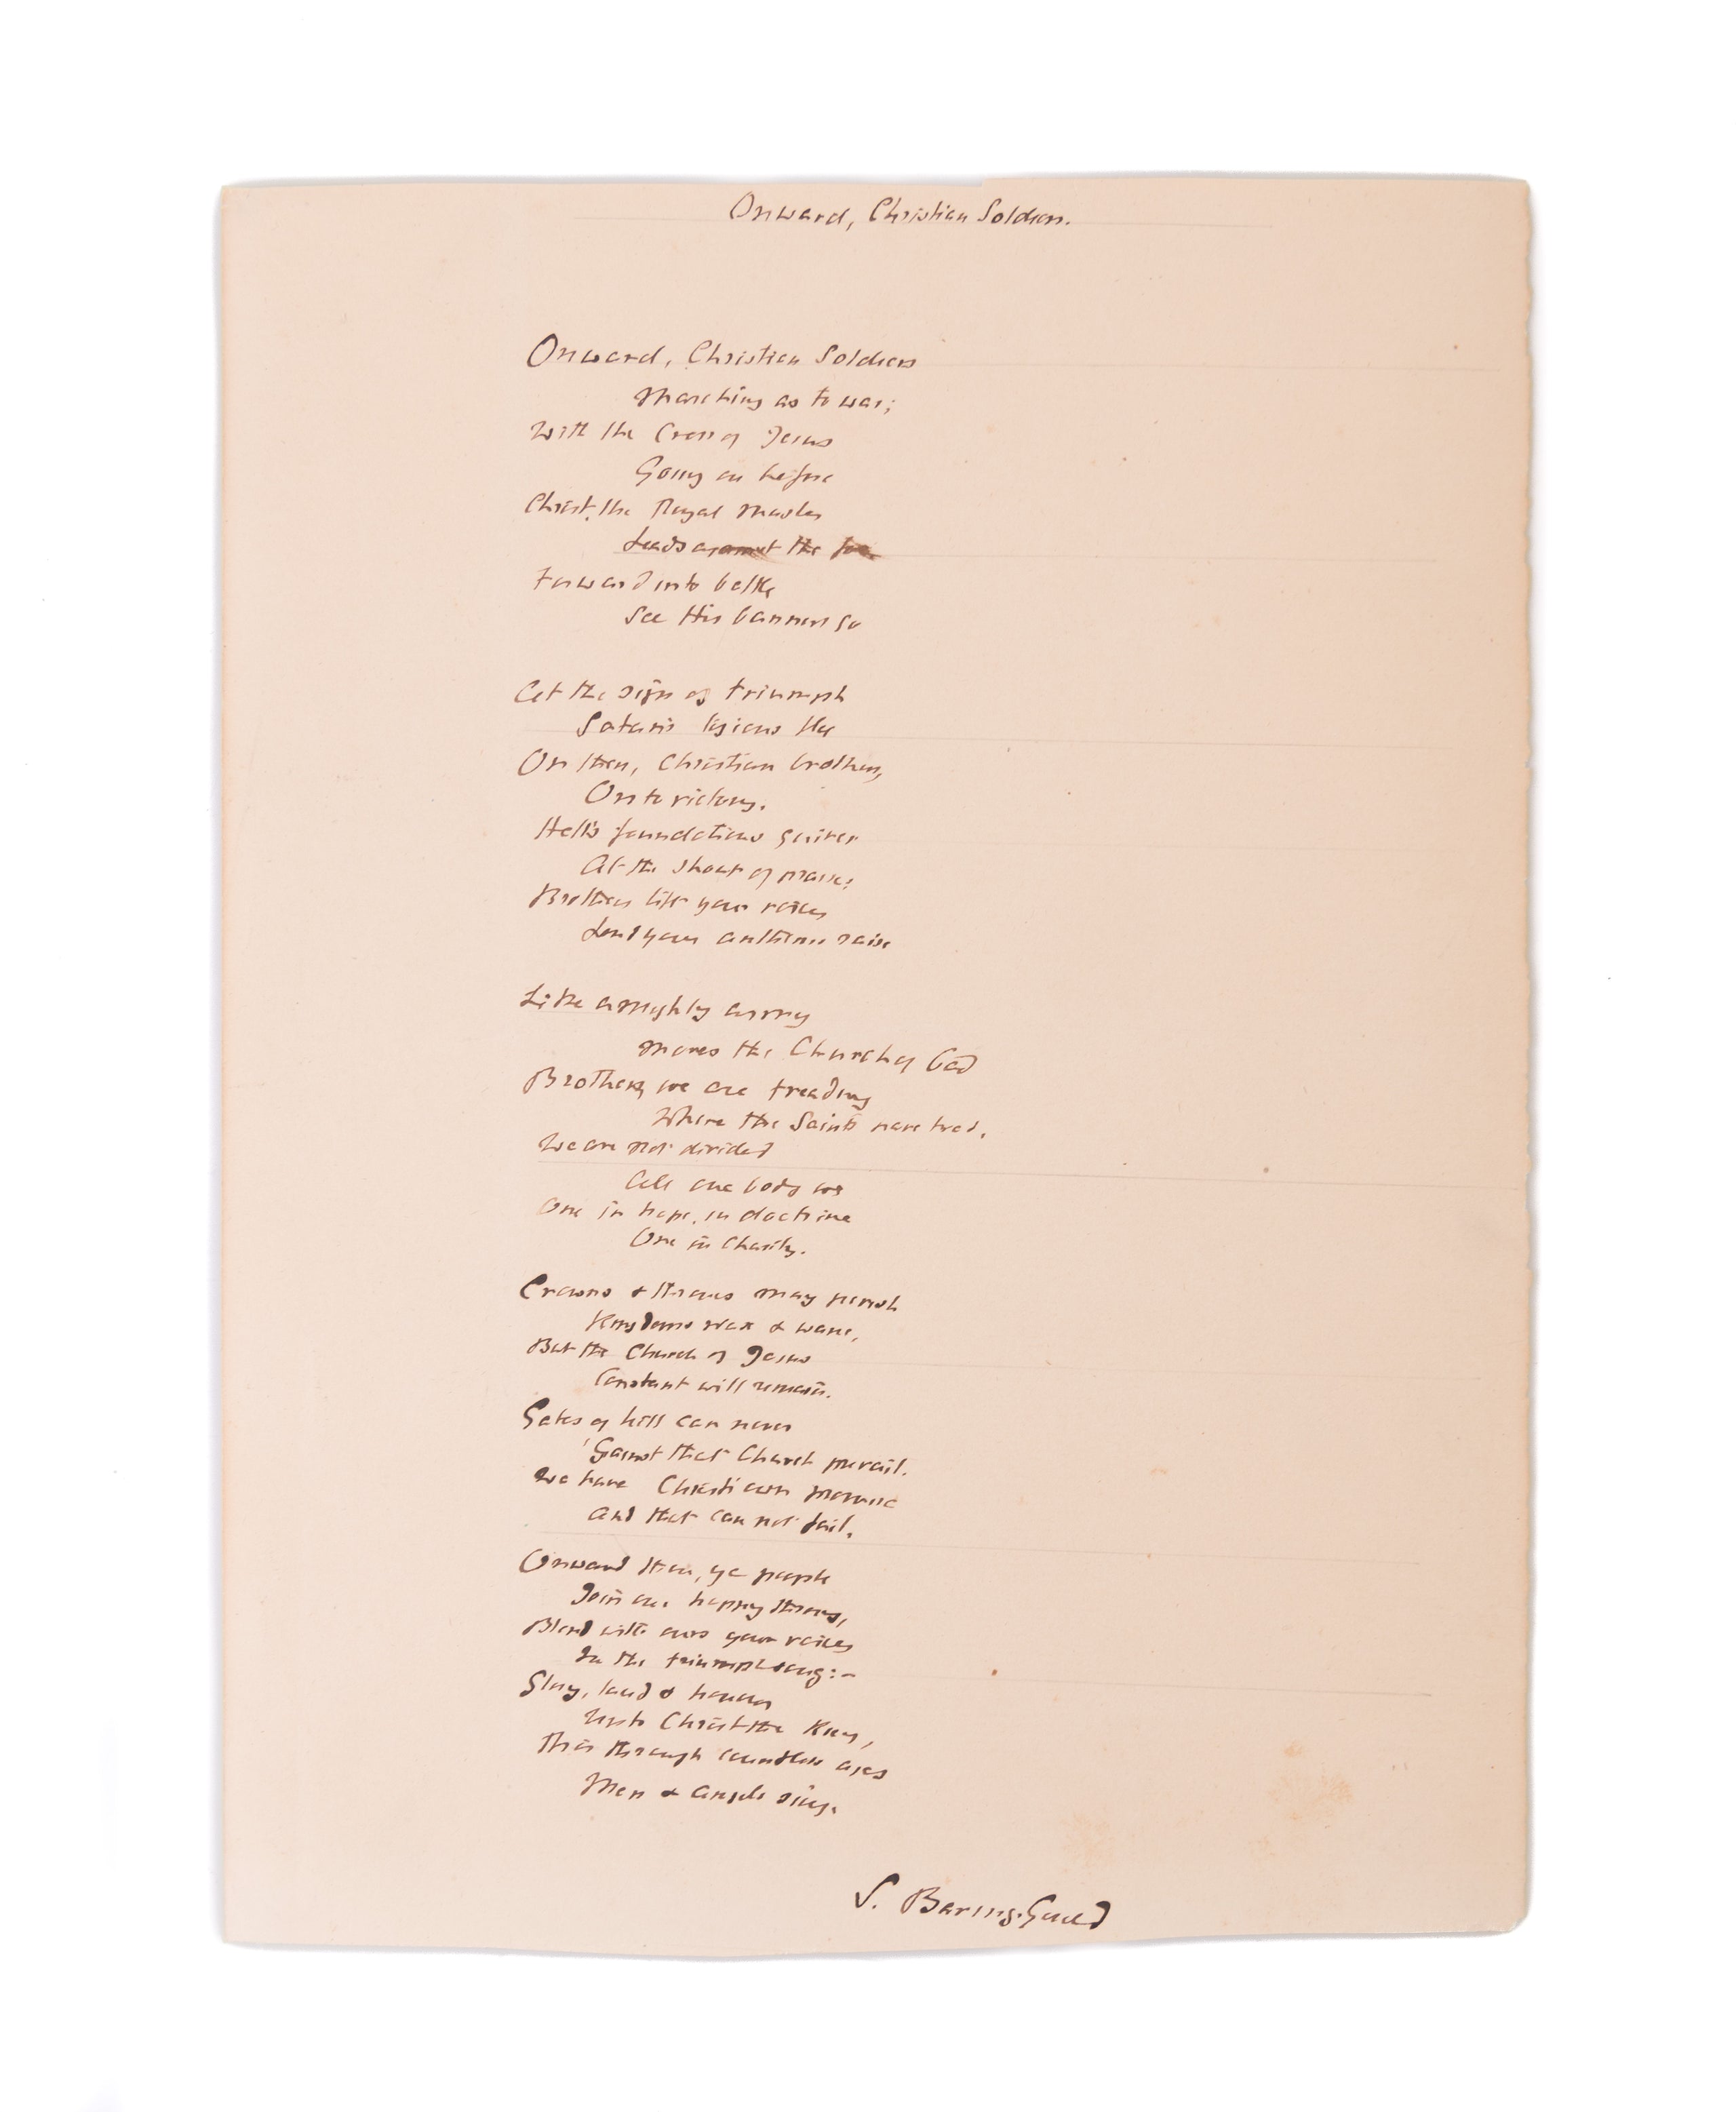 Onward, Christian Soldiers.
Onward, Christian Soldiers
Marching as to war;
With the Cross of Jesus
Going on before
Christ, the Royal Master
Leads against the foe
Forward into battle
See His banners go
At the sign of triumph
Satan's legions flee
On then, Christian brothers,
On to victory.
Hell's foundations quiver
At the shout of praise;
Brothers lift your voices
Loud your anthems raise
Like a mighty army
Moves the Church of God
Brothers, we are treading
Where the Saints have trod.
We are not divided
All one body we
One in hope, in doctrine
One in Charity.
Crowns & thrones may perish
Kingdoms wax & wane,
But the Church of Jesus
Constant will remain.
Gates of hell can never
'Gainst that Church prevail.
We have Christ's own promise
And that can not fail.
Onward then, ye people
Join our happy throng,
Blend with ours your voices
In the triumph song:-
Glory, laud & honour
Unto Christ the King,
This through countless ages
Men & angels sing.
S. Baring-Gould